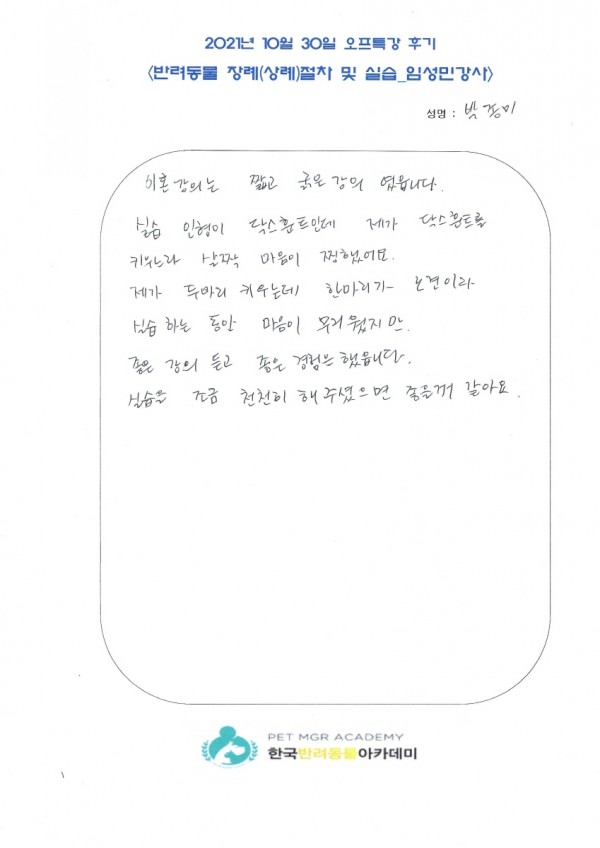 2021년 10월 30일 오프특강 후기
<반려동물 장례(상례)절차 및 실습_임성민강사>
성명 : 박종미
이혼강의는 짧고 굵은 강의 였읍니다.
실습 인형이 닥스훈트인데 제가 닥스훈트를
키우느라 살짝 마음이 찡했어요.
제가 두마리 키우는데 한마리가 노견이라
실습 하는 동안 마음이 무거웠지만.
좋은 강의 듣고 좋은 경험은 했읍니다.
실습을 조금 천천히 해 주셨으면 좋을꺼 같아요.
PET MGR ACADEMY
한국반려동물아카데미